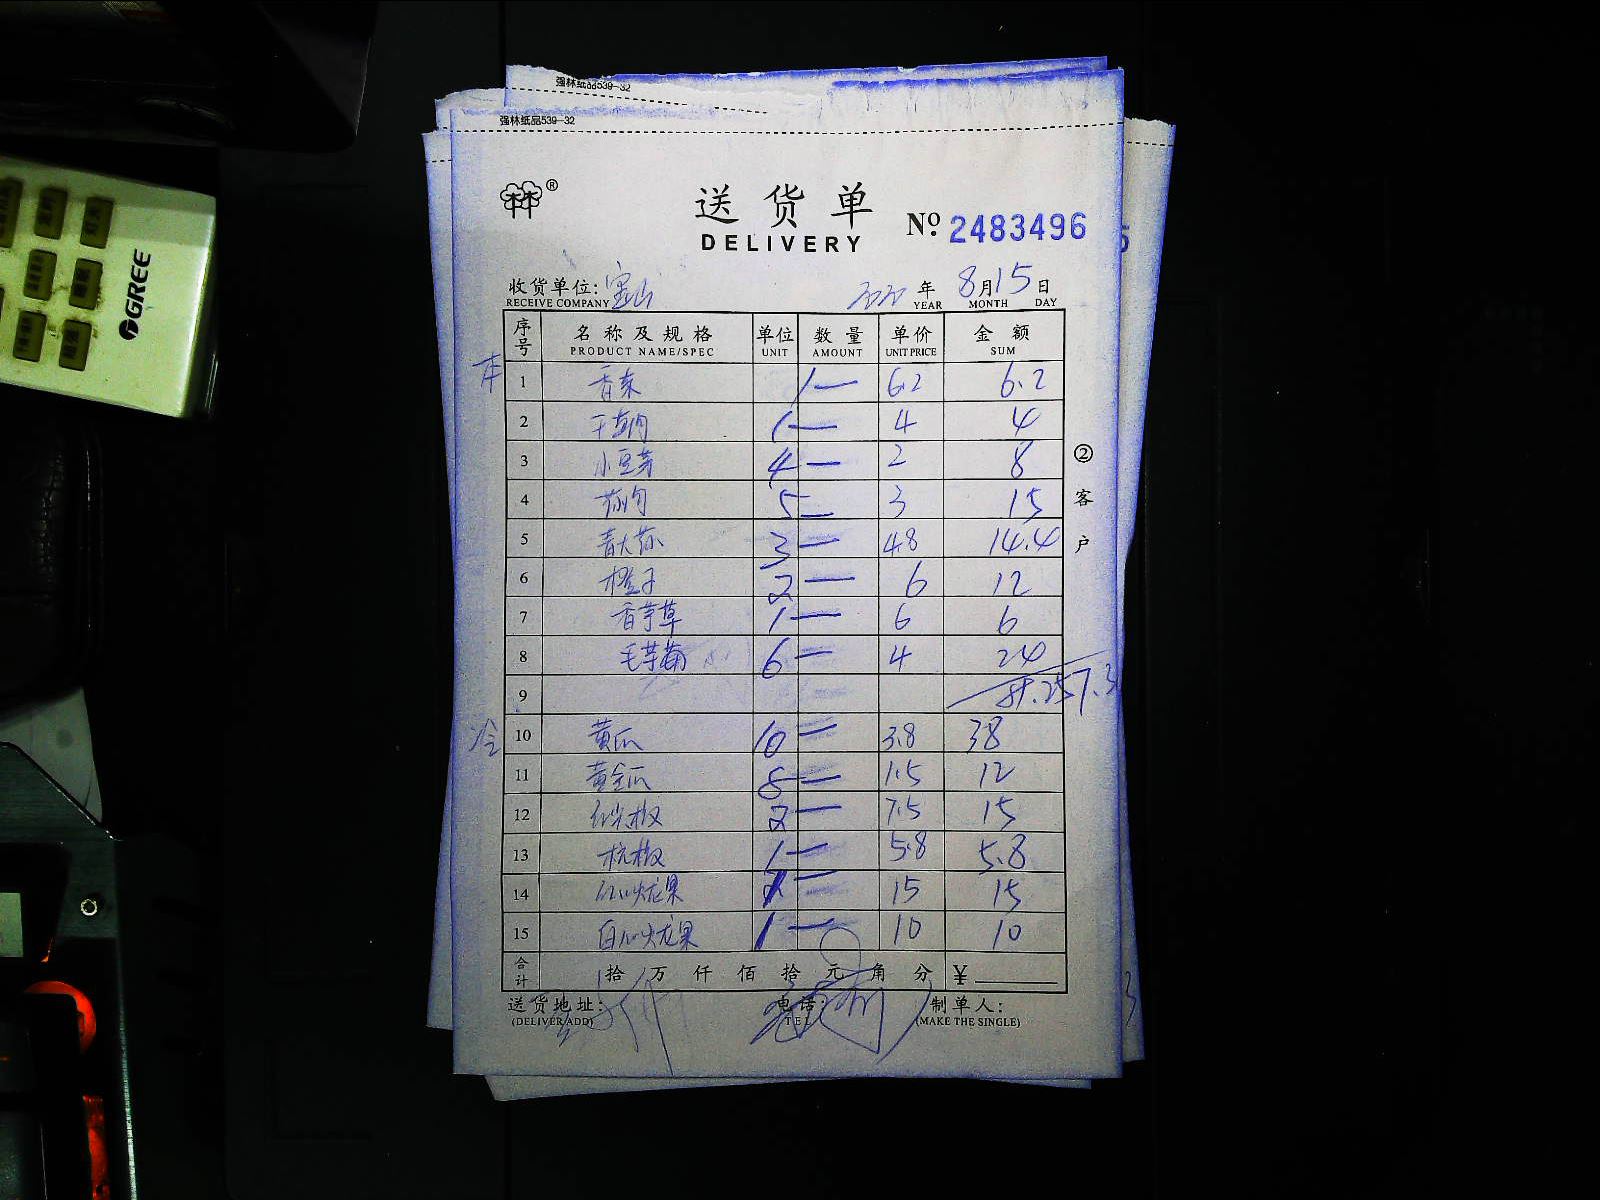 强林纸品539-32
强林纸品539-32
®
送货单 № 2483496
DELIVERY
收货单位: 宝山 2020 年 8 月 15 日
RECEIVE COMPANY YEAR MONTH DAY
序号 名称及规格 单位 数量 单价 金额
PRODUCT NAME/SPEC UNIT AMOUNT UNIT PRICE SUM
1 香菜 1 6.2 6.2
2 1 4 4
3 小豆芽 4 2 8
4 5 3 15
5 3 4.8 14.4
6 橙子 2 6 12
7 香芋草 1 6 6
8 6 4 24
9
冷 10 黄瓜 10 3.8 38
11 黄金瓜 8 1.5 12
12 红尖椒 2 7.5 15
13 杭椒 1 5.8 5.8
14 红心火龙果 1 15 15
15 白心火龙果 1 10 10
合计 拾 万 仟 佰 拾 元 角 分 ¥
送货地址: 电话: 制单人:
(DELIVER ADD) TEL (MAKE THE SINGLE)
②客户
GREE